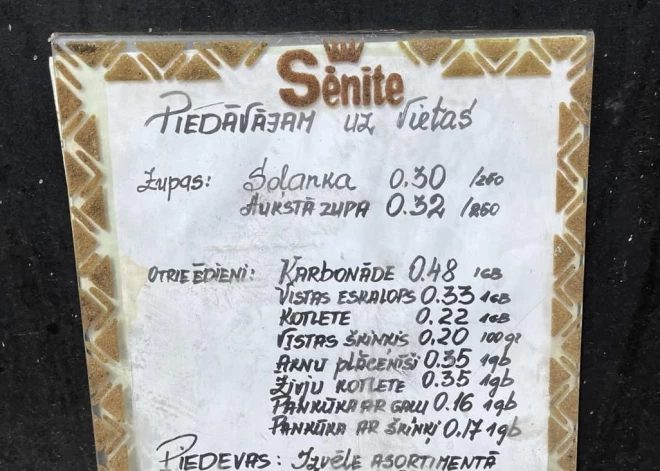 Sēnīte
PIEDĀVĀJAM UZ VIETAS
Zupas: Soļanka 0.30 /250
AUKSTĀ ZUPA 0.32 /250
OTRIE ĒDIENI: KARBONĀDE 0.48 1GB
VISTAS ESKALOPS 0.33 1GB
KOTLETE 0.22 1GB
VISTAS ŠĶIŅĶIS 0.20 100gr
AKNU PLĀCENĪŠI 0.35 1gb
ZIVJU KOTLETE 0.35 1gb
PANKŪKA AR GAĻU 0.16 1gb
PANKŪKA AR ŠĶIŅĶI 0.17 1gb
PIEDEVAS: IZVĒLE ASORTIMENTĀ